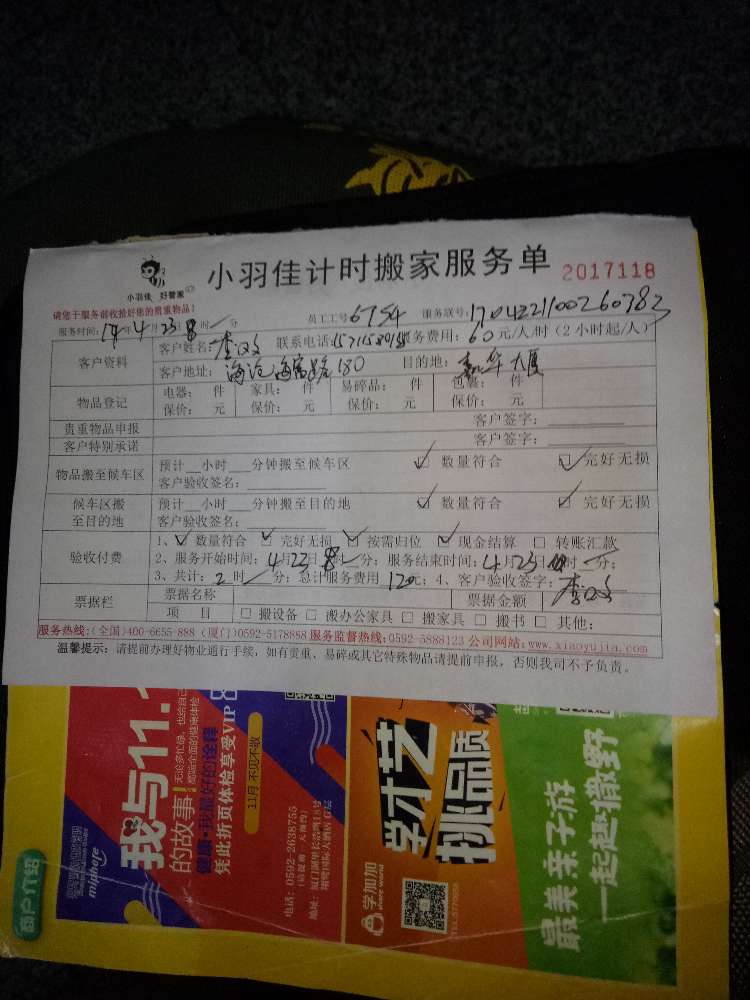 小羽佳 好管家
小羽佳计时搬家服务单 2017118
请您于服务前收拾好您的贵重物品！ 员工工号6754 服务联号：1704221100260782
服务时间：17年4月23日8时 分
客户资料 客户姓名：李汉文 联系电话： 服务费用：60元/人/时（2小时起/人）
客户地址：海沧海富路180 目的地：嘉华大厦
物品登记 电器： 件 家具： 件 易碎品： 件 包裹： 件
保价： 元 保价： 元 保价： 元 保价： 元
贵重物品申报 客户签字：
客户特别承诺 客户签字：
物品搬至候车区 预计__小时__分钟搬至候车区 ☑ 数量符合 ☑ 完好无损
客户验收签名：
候车区搬至目的地 预计__小时__分钟搬至目的地 ☑ 数量符合 ☑ 完好无损
客户验收签名：
验收付费 1、☑ 数量符合 ☑ 完好无损 ☑ 按需归位 ☑ 现金结算 □ 转账汇款
2、服务开始时间：4月23日8时 分；服务结束时间：4月23日 时 分；
3、共计：2时 分；总计服务费用120元；4、客户验收签字：李汉文
票据栏 票据名称 票据金额
项 目 □ 搬设备 □ 搬办公家具 □ 搬家具 □ 搬书 □ 其他：
服务热线：(全国)400-6655-888 (厦门)0592-5178888 服务监督热线：0592-5888123 公司网站：www.xiaoyujia.com
温馨提示：请提前办理好物业通行手续，如有贵重、易碎或其它特殊物品请提前申报，否则我司不予负责。
商户介绍
我与11.
的故事！
健康·我最好的诠释
凭此折页体检享受VIP
11月 不见不散
电话：0592-2638755
miphare
学才艺
挑品质
学加加
share world
最美亲子游
一起趣撒野